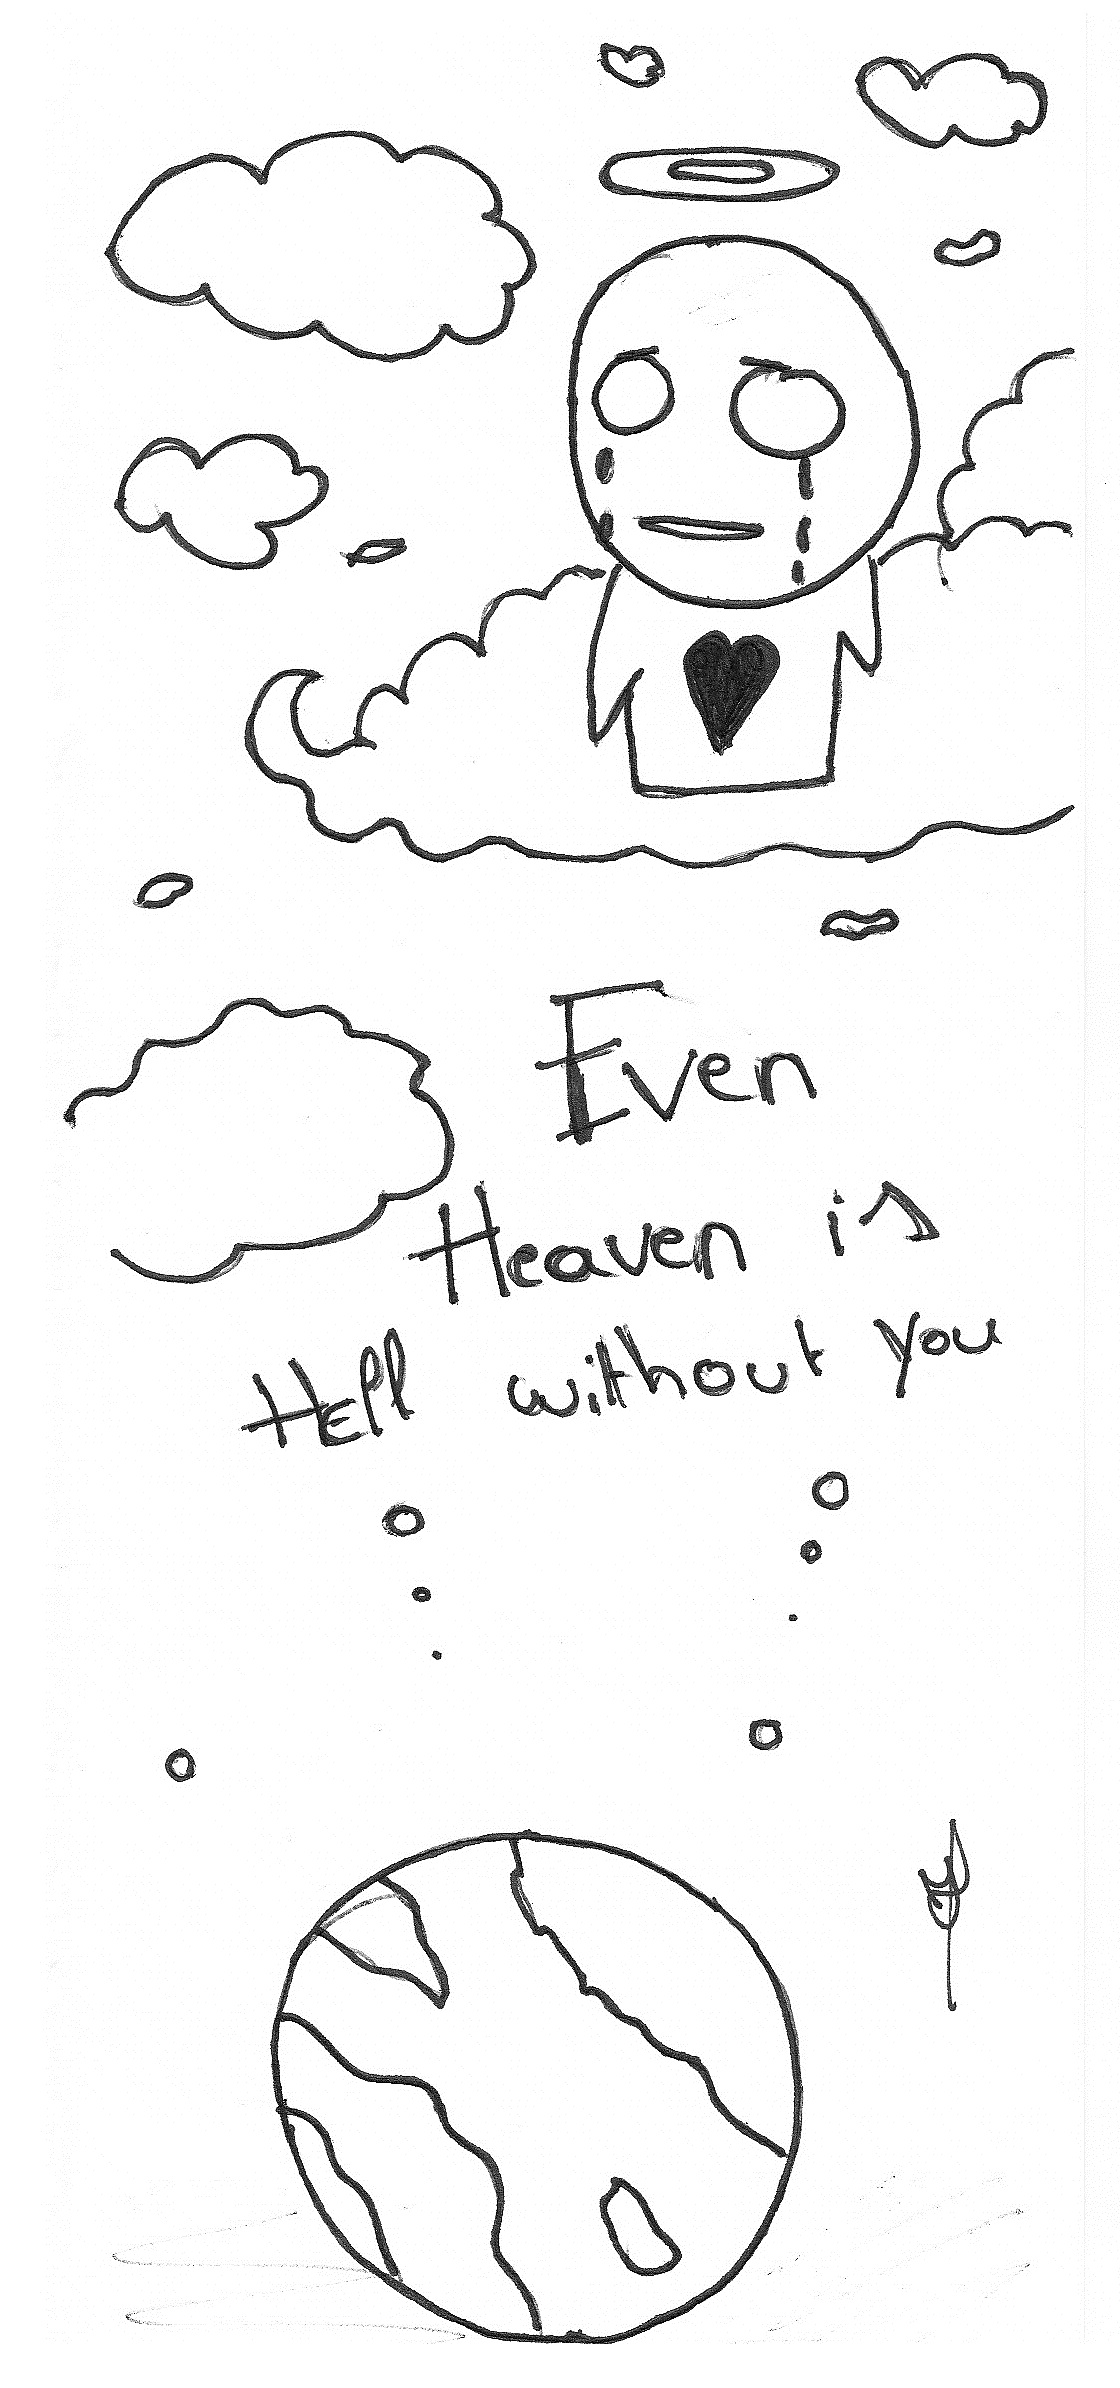 Even
Heaven is
Hell without you